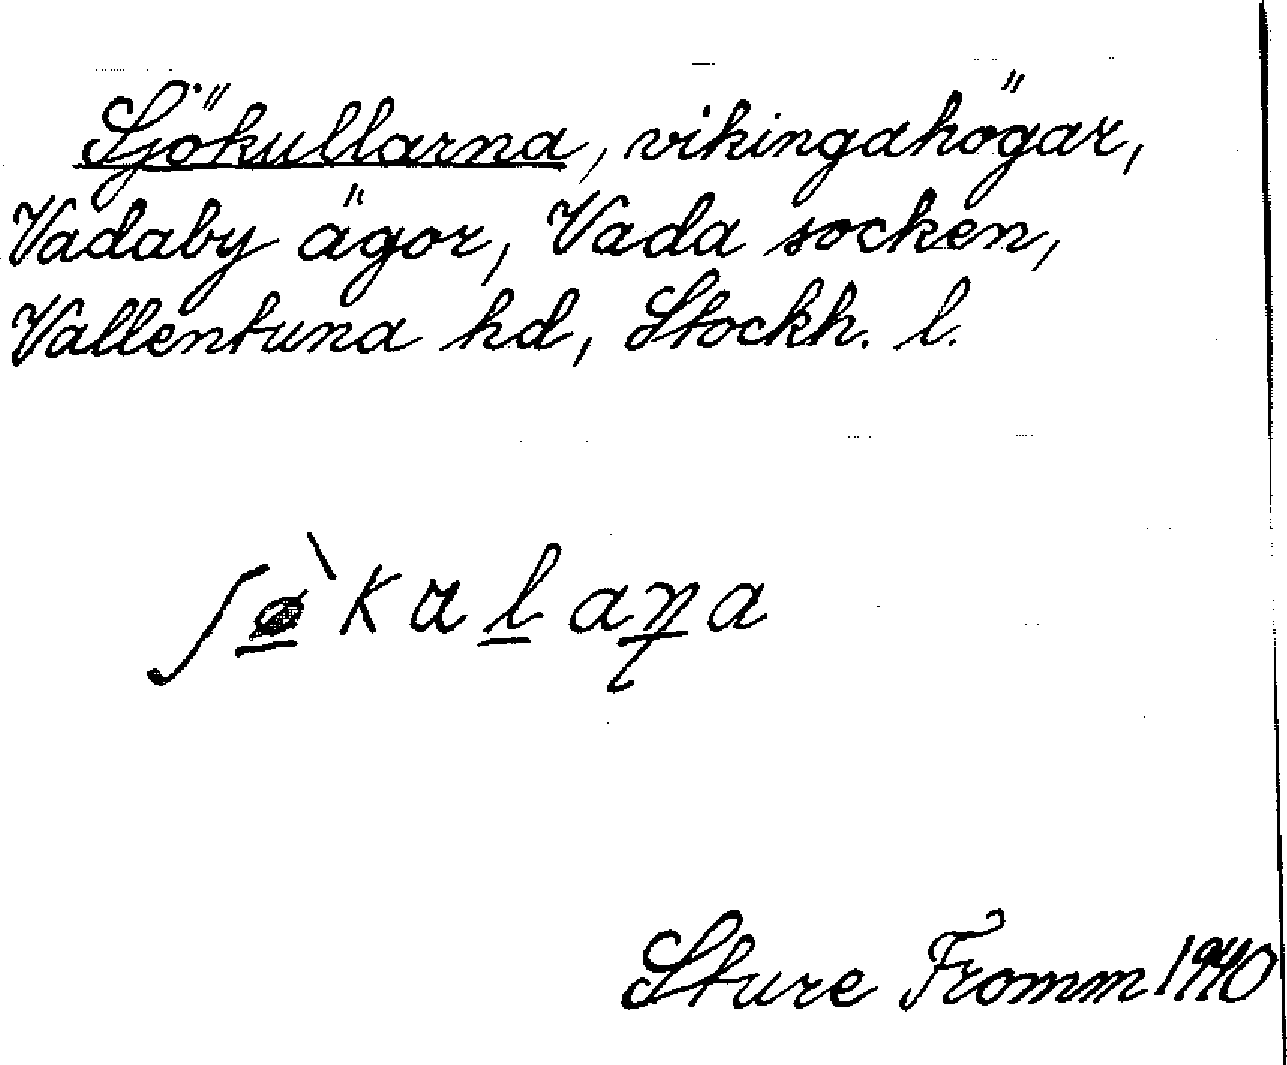 Sjökullarna, vikingahögar,
Vadaby ägor, Vada socken,
Vallentuna hd, Stockh. l.
ʃø̱̀kuḻaɳa
Sture Fromm 1940